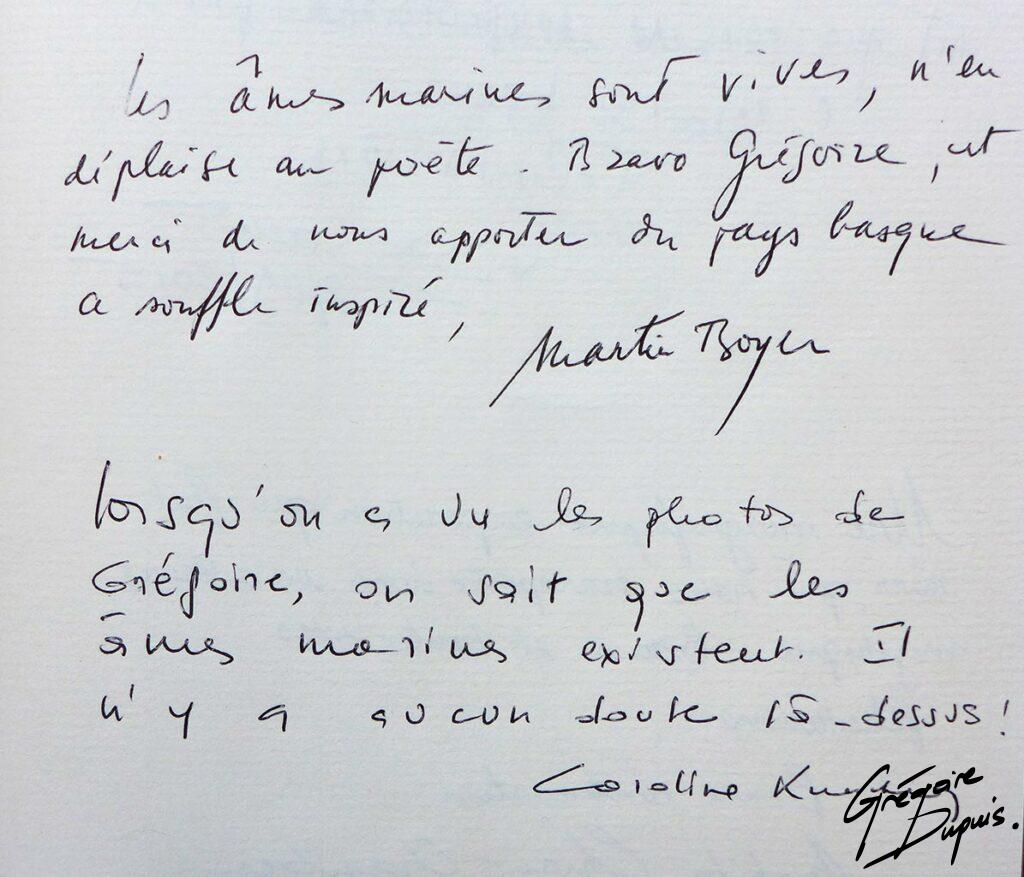 Les âmes marines sont vives, n'en
déplaise au poète. Bravo Grégoire, et
merci de nous apporter du pays basque
ce souffle inspiré,
Martin Boyer
Lorsqu'on a vu les photos de
Grégoire, on sait que les
âmes marines existent. Il
n'y a aucun doute là-dessus !
Caroline
Grégoire
Dupuis.